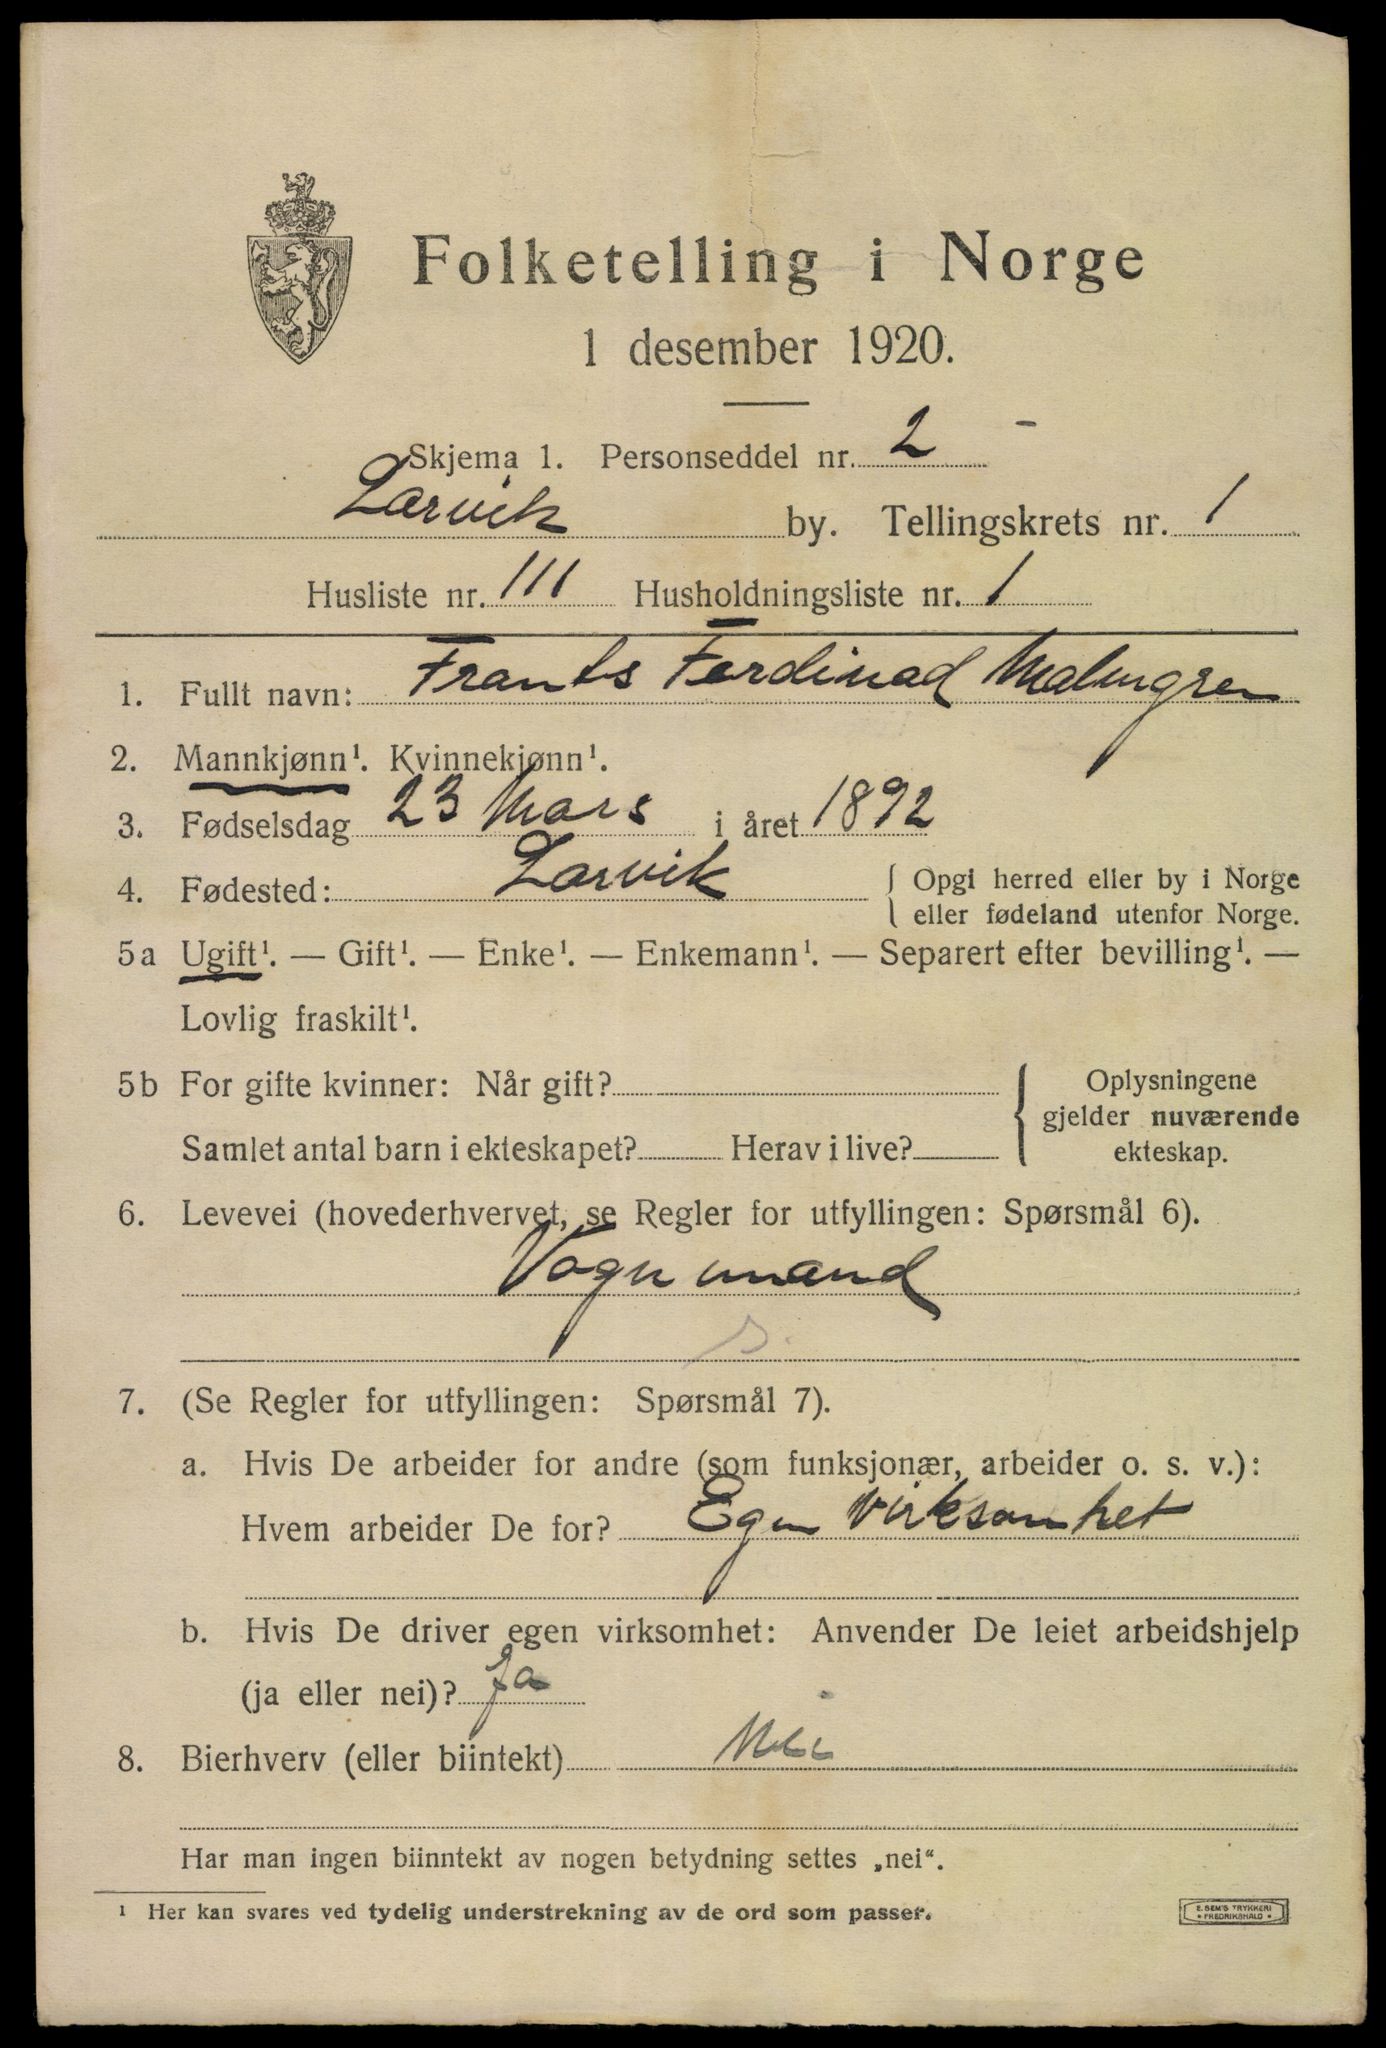 Folketelling i Norge
1 desember 1920.
Skjema 1. Personseddel nr. 2
Larvik by. Tellingskrets nr. 1
Husliste nr. 111 Husholdningsliste nr. 1
1. Fullt navn: Frants Ferdinad Malmgren
2. Mannkjønn¹. Kvinnekjønn¹.
3. Fødselsdag 23 Mars i året 1892
4. Fødested: Larvik { Opgi herred eller by i Norge
eller fødeland utenfor Norge.
5a Ugift¹. — Gift¹. — Enke¹. — Enkemann¹. — Separert efter bevilling¹. —
Lovlig fraskilt¹.
5b For gifte kvinner: Når gift? { Oplysningene
gjelder nuværende
Samlet antal barn i ekteskapet? Herav i live? ekteskap.
6. Levevei (hovederhvervet, se Regler for utfyllingen: Spørsmål 6).
Vognmand
s.
7. (Se Regler for utfyllingen: Spørsmål 7).
a. Hvis De arbeider for andre (som funksjonær, arbeider o. s. v.):
Hvem arbeider De for? Egen virksomhet
b. Hvis De driver egen virksomhet: Anvender De leiet arbeidshjelp
(ja eller nei)? ja
8. Bierhverv (eller biintekt) Nei
Har man ingen biinntekt av nogen betydning settes „nei“.
¹ Her kan svares ved tydelig understrekning av de ord som passer.
E. SEM'S TRYKKERI
• FREDRIKSHALD •